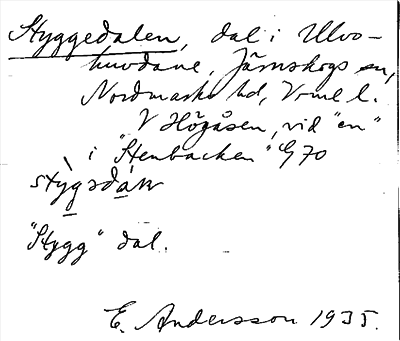 Styggedalen, dal i Ulvs-
huvdane, Järnskogs sn,
Nordmarks hd, Vrml l.
V Högåsen, vid "en"
i "Stenbacken" G 70
stỳgədàʌn
"Stygg" dal.
E. Andersson 1935.